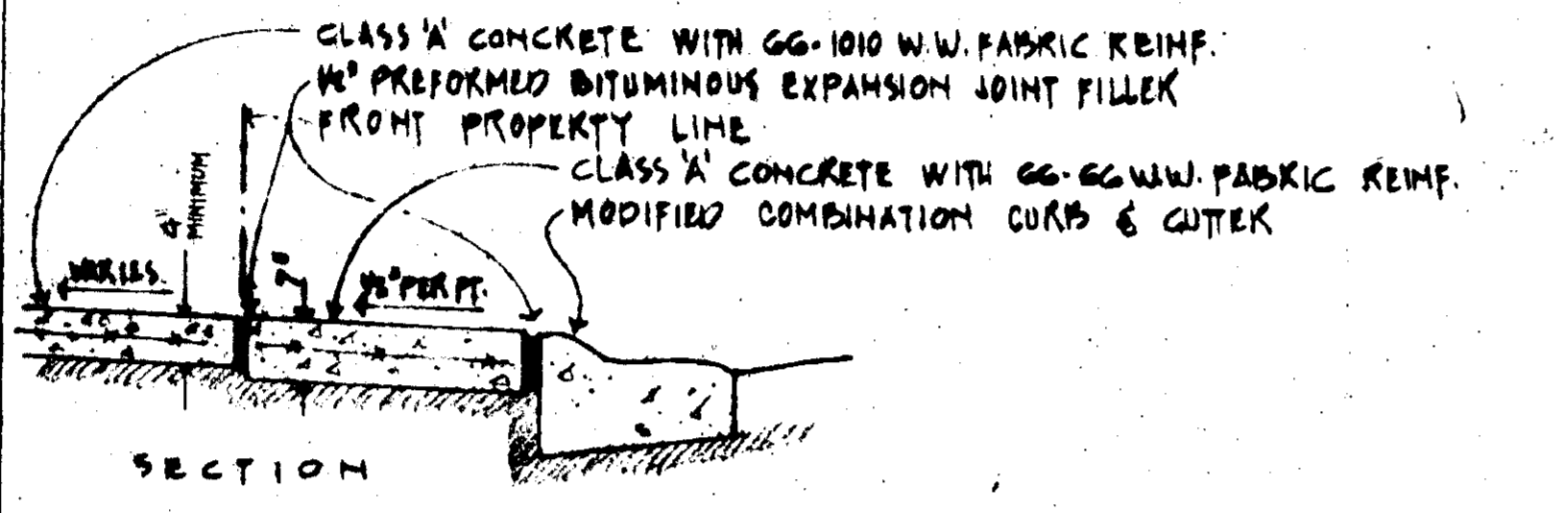 CLASS 'A' CONCRETE WITH 66-1010 W.W. FABRIC REINF.
1/2" PREFORMED BITUMINOUS EXPANSION JOINT FILLER
FRONT PROPERTY LINE
CLASS 'A' CONCRETE WITH 66-66 W.W. FABRIC REINF.
MODIFIED COMBINATION CURB & GUTTER
4" MINIMUM
VARIES
1/2" PER FT.
SECTION